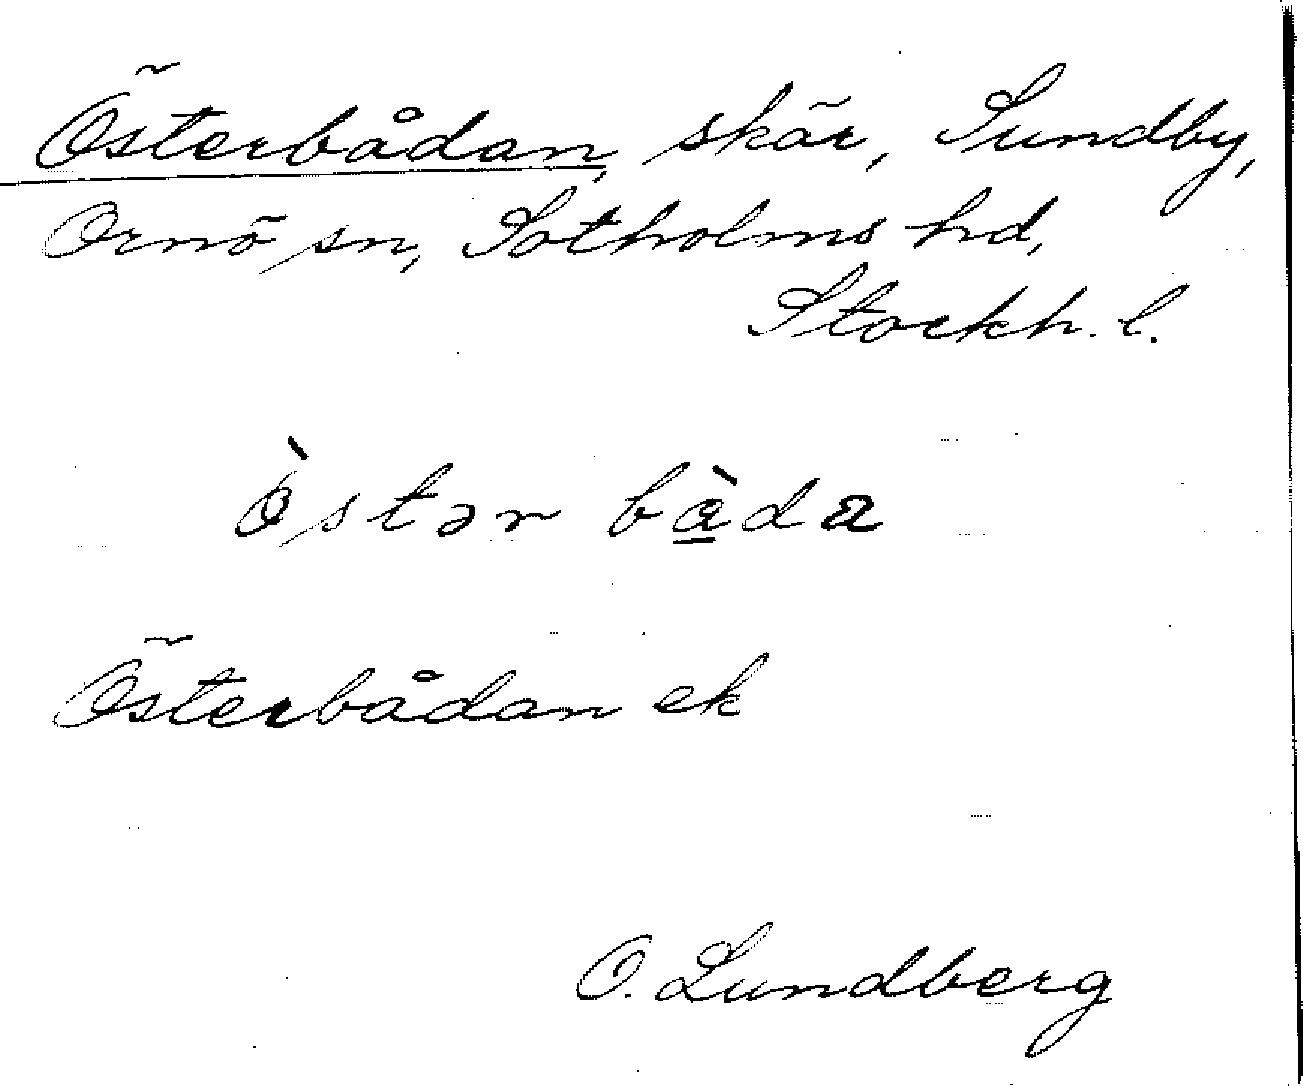 Österbådan, skär, Sundby,
Ornö sn, Sotholms hd,
Stockh. l.
ò̀stər bàda
Österbådan ek
O. Lundberg